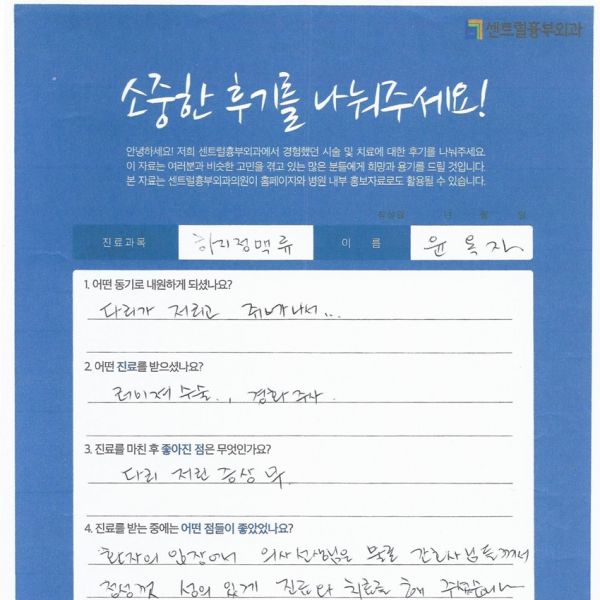 센트럴흉부외과
소중한 후기를 나눠주세요!
안녕하세요! 저희 센트럴흉부외과에서 경험했던 시술 및 치료에 대한 후기를 나눠주세요.
이 자료는 여러분과 비슷한 고민을 겪고 있는 많은 분들에게 희망과 용기를 드릴 것입니다.
본 자료는 센트럴흉부외과의원이 홈페이지와 병원 내부 홍보자료로도 활용될 수 있습니다.
작성일 년 월 일
진료과목 하지정맥류 이 름 윤옥자
1. 어떤 동기로 내원하게 되셨나요?
다리가 저리고 쥐가 나서...
2. 어떤 진료를 받으셨나요?
레이져 수술., 경화주사.
3. 진료를 마친 후 좋아진 점은 무엇인가요?
다리 저린 증상 무.
4. 진료를 받는 중에는 어떤 점들이 좋았었나요?
환자의 입장에서 의사선생님은 물론 간호사님들께서
정성껏 성의 있게 진료와 치료를 해 주셨습니다